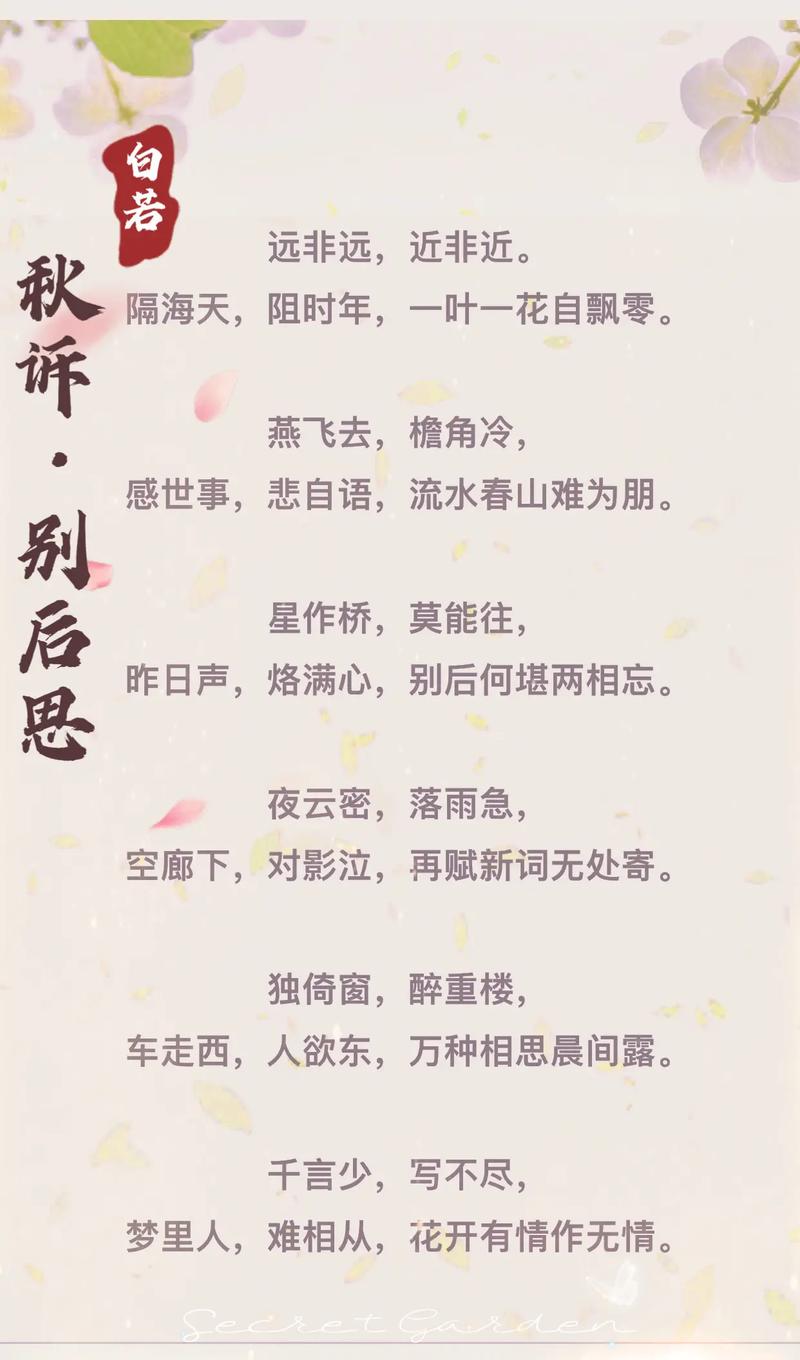 白若
秋诉·别后思
远非远，近非近。
隔海天，阻时年，一叶一花自飘零。
燕飞去，檐角冷，
感世事，悲自语，流水春山难为朋。
星作桥，莫能往，
昨日声，烙满心，别后何堪两相忘。
夜云密，落雨急，
空廊下，对影泣，再赋新词无处寄。
独倚窗，醉重楼，
车走西，人欲东，万种相思晨间露。
千言少，写不尽，
梦里人，难相从，花开有情作无情。
Secret Garden